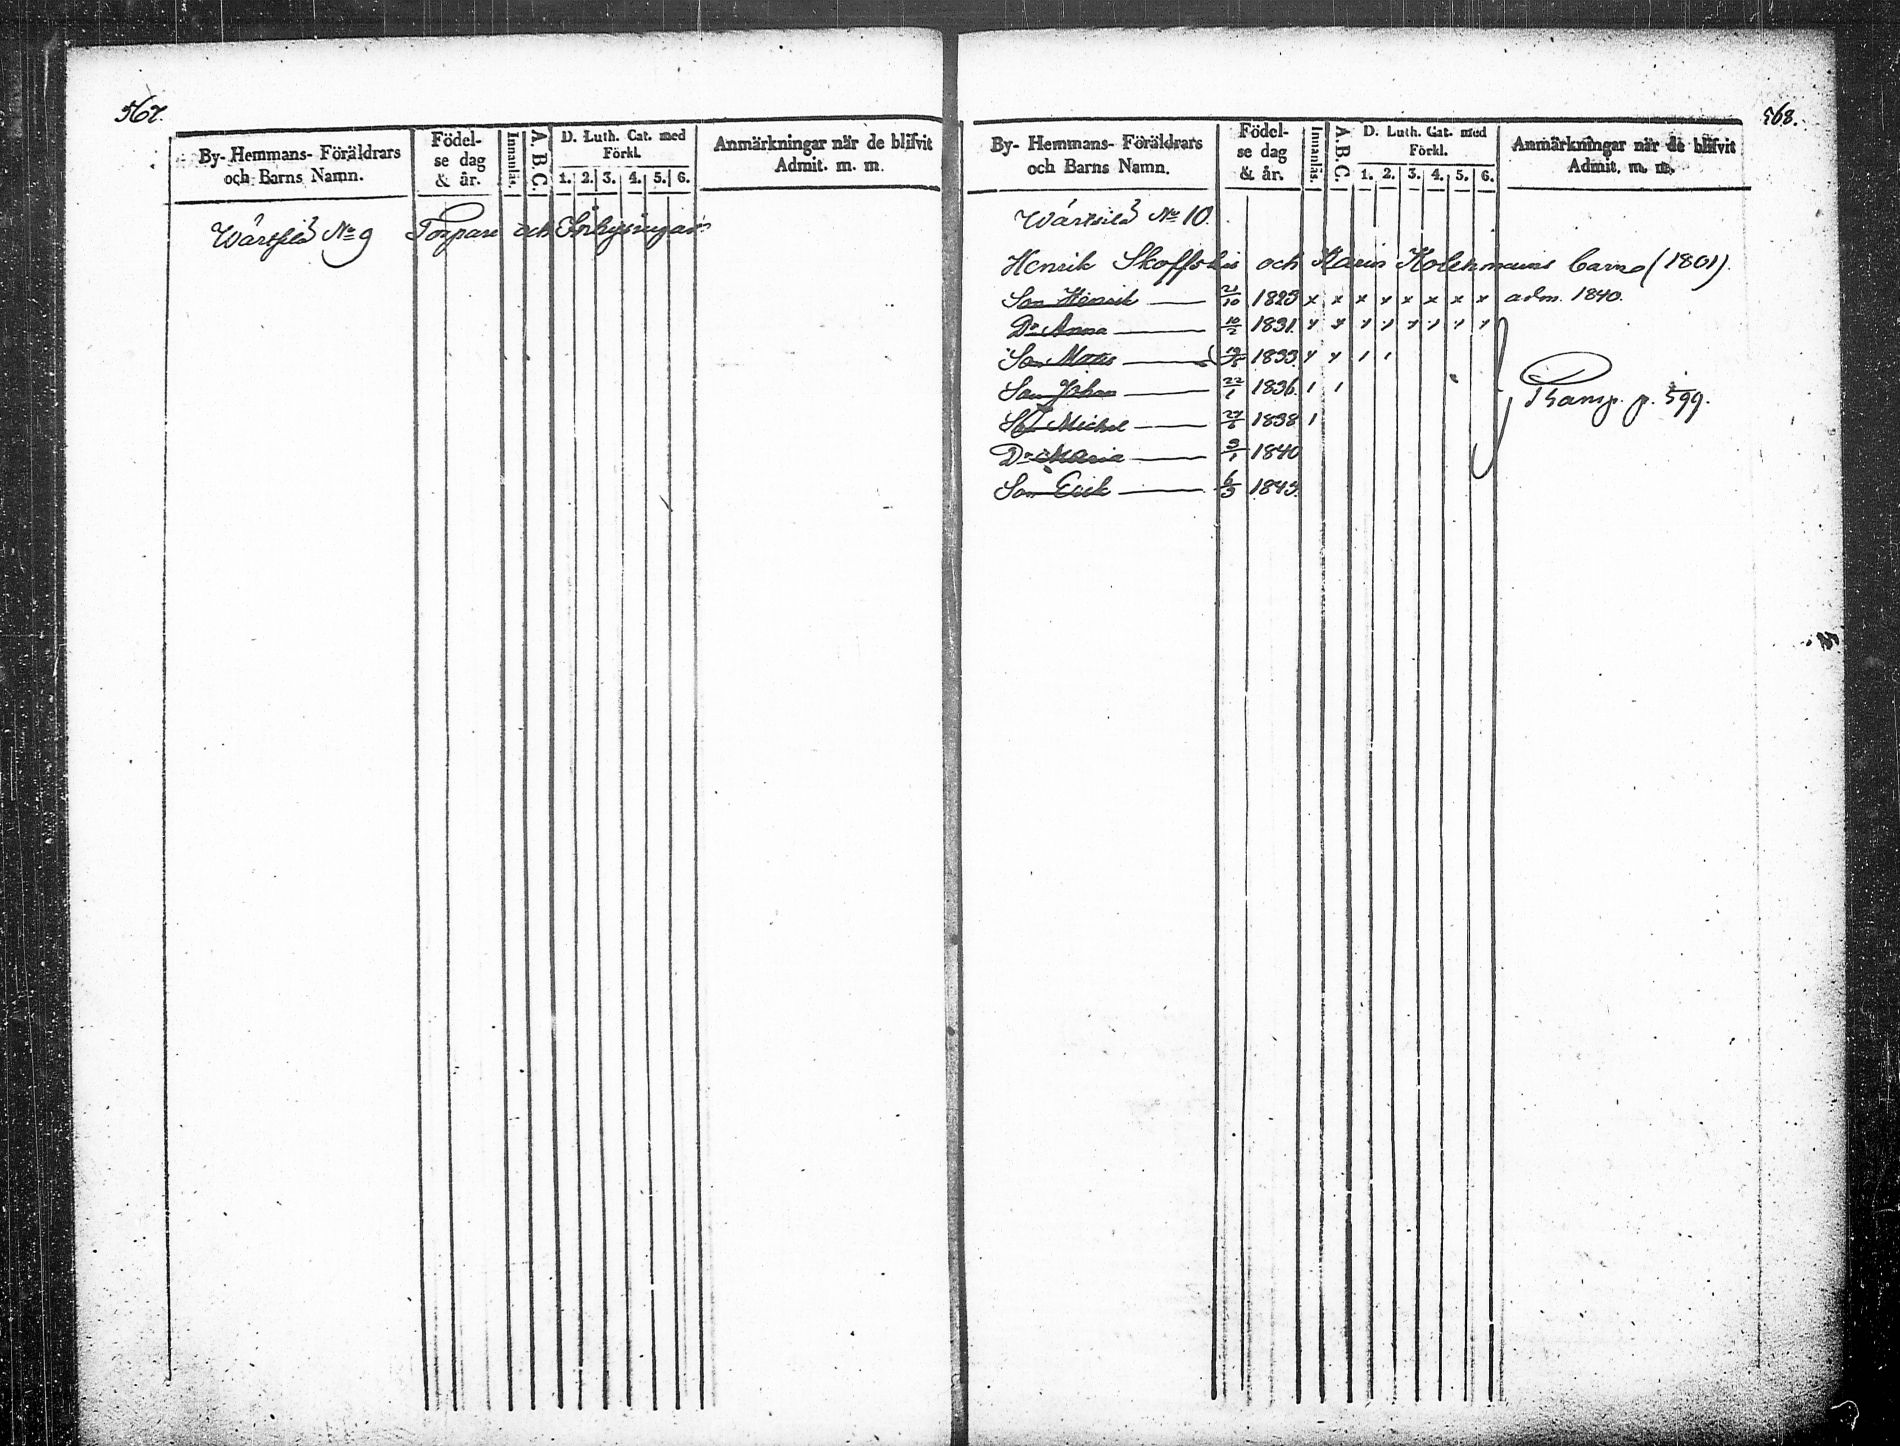 567.
By- Hemmans- Föräldrars och Barns Namn.
Födel-se dag & år.
Innanläs.
A. B. C.
D. Luth. Cat. med Förkl.
1. 2. 3. 4. 5. 6.
Anmärkningar när de blifvit Admit. m. m.
Wärtsilä No 9 Torpare och Inhysingar
568.
By- Hemmans- Föräldrars och Barns Namn.
Födel-se dag & år.
Innanläs.
A. B. C.
D. Luth. Cat. med Förkl.
1. 2. 3. 4. 5. 6.
Anmärkningar när de blifvit Admit. m. m.
Wärtsilä No 10.
Henrik och Karin Kolehmains barn (1801).
Son Henrik 21/10 1825 x x x x x x x x adm. 1840.
Dr Anna 10/2 1831. y y y y y y y y
Son Mats 1833. y y 1 1
Son Johan 22/1 1836. 1 1
p. 599.
Son Michel 1838 1
Dr Maria 3/1 1840
Son Erik 1843.